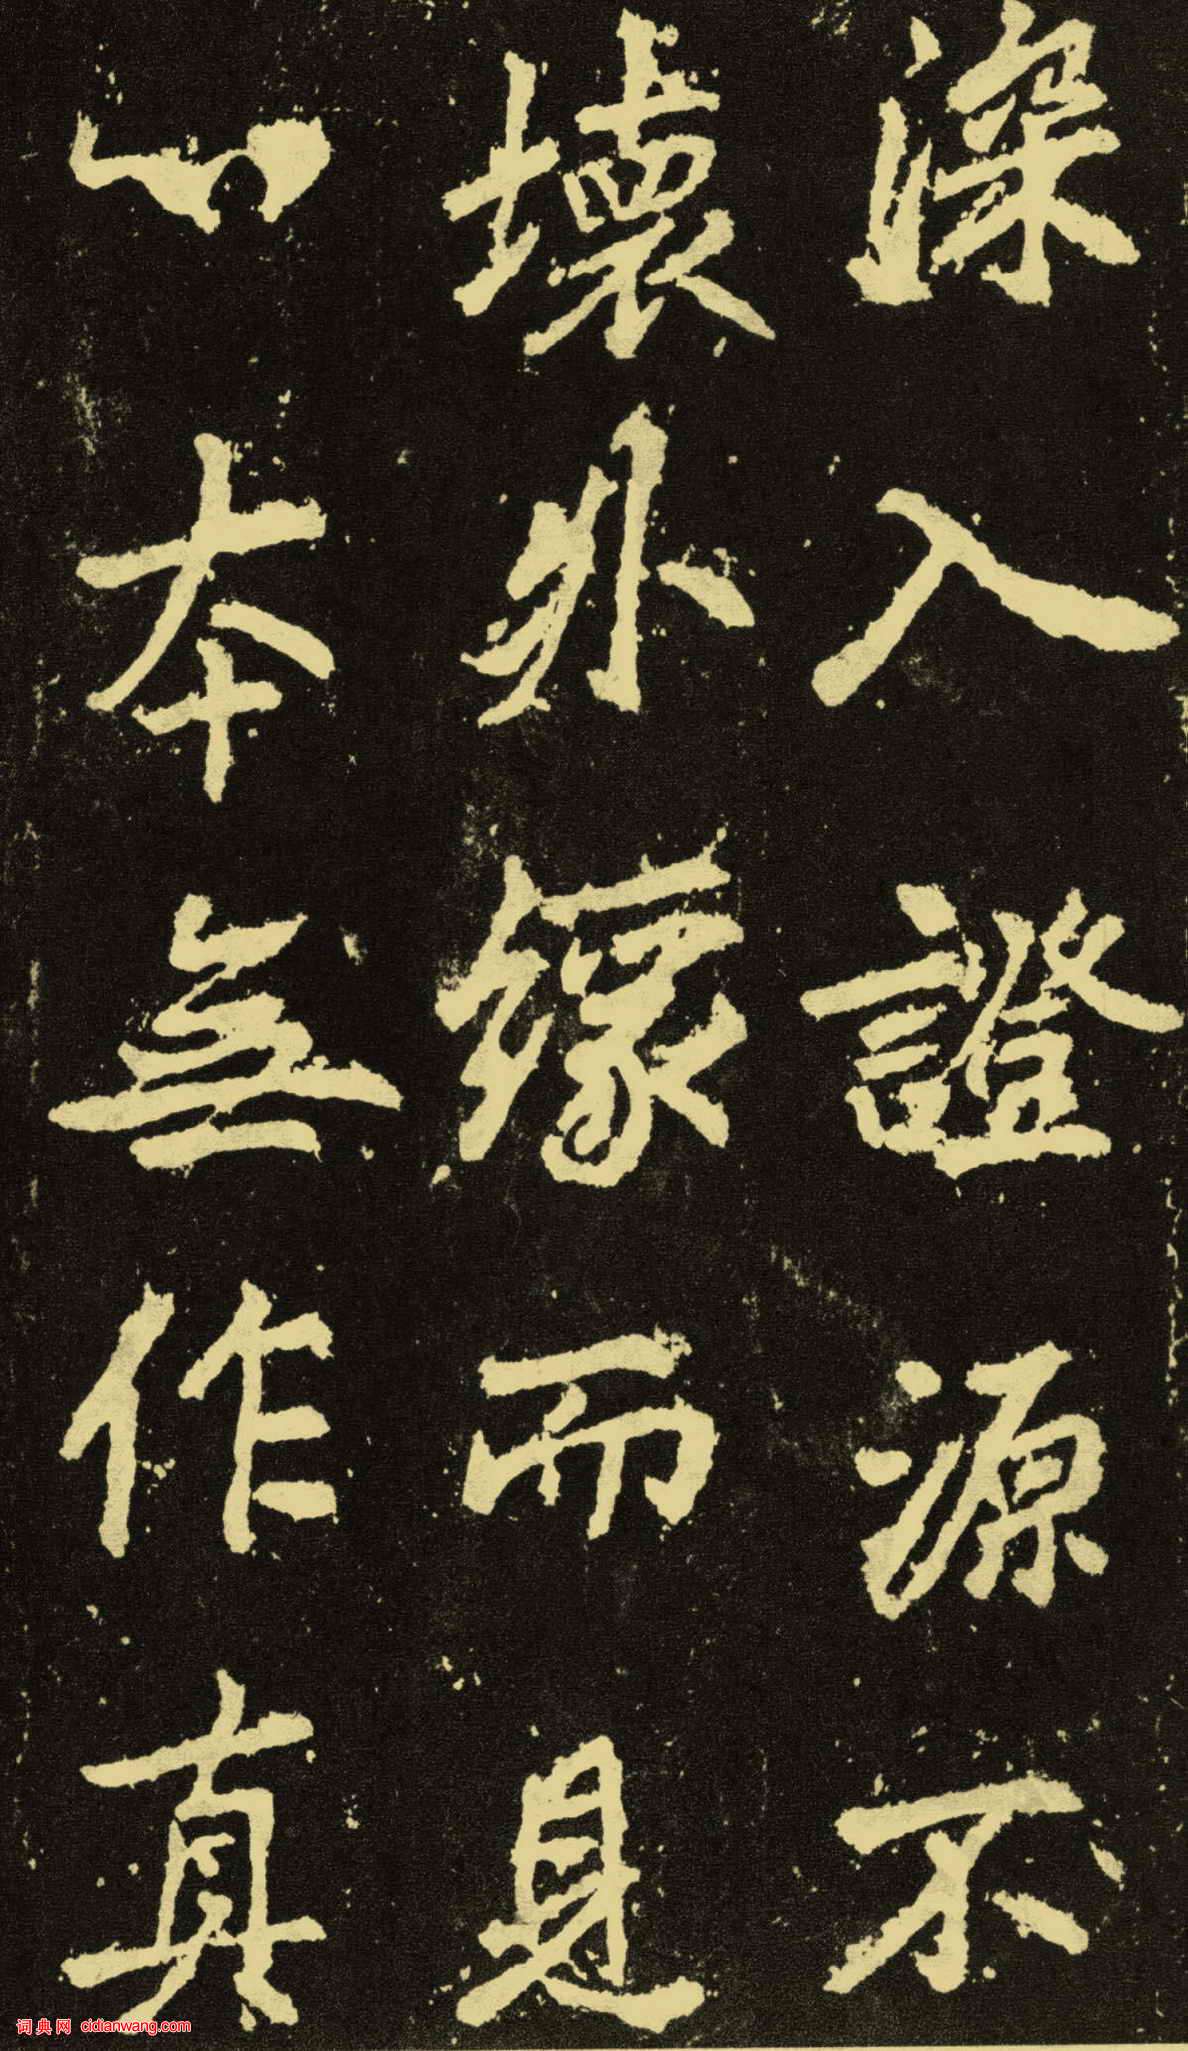 深入證源不
壞外緣而見
心本無作真
词典网 cidianwang.com